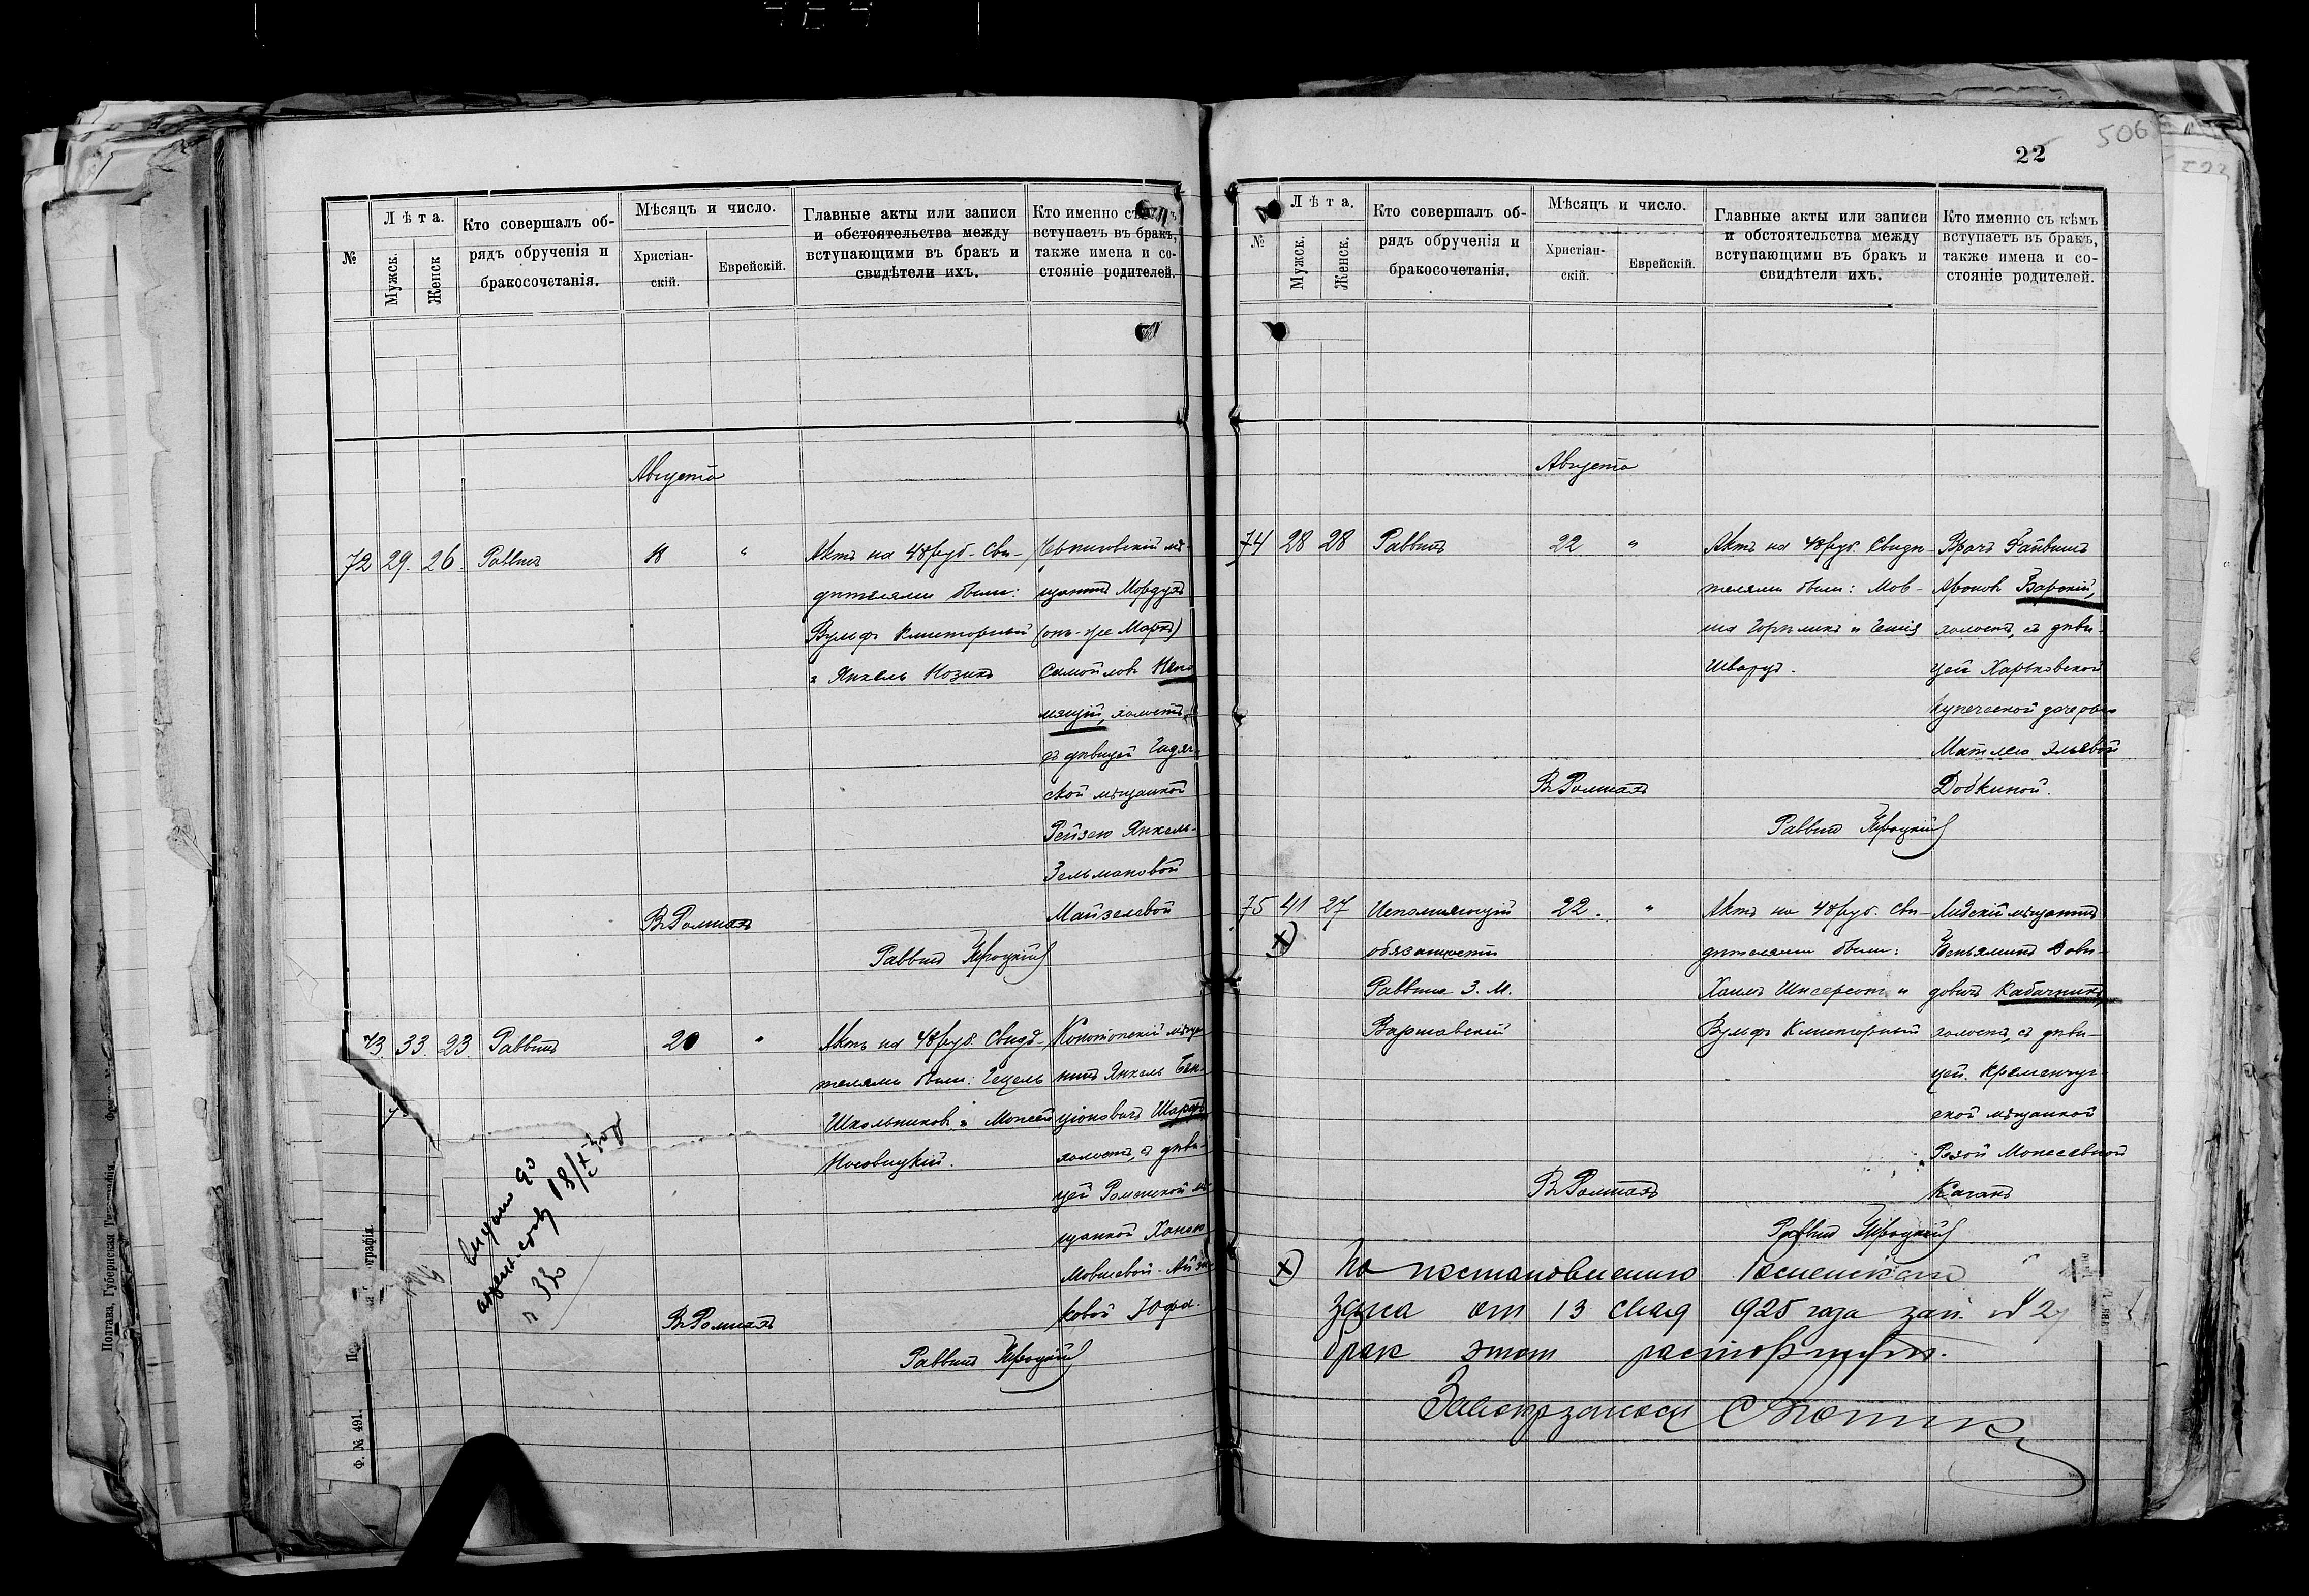 №
Лѣта.
Мужск.
Женск
Кто совершалъ об-
рядъ обрученія и
бракосочетанія.
Мѣсяцъ и число.
Христіан-
скій.
Еврейскій.
Главные акты или записи
и обстоятельства между
вступающими въ бракъ и
свидѣтели ихъ.
Кто именно
вступаетъ въ бракъ,
также имена и со-
стояніе родителей.
Августа
72 29. 26. Раввинъ 18 "
Актъ на 48 руб. Сви-
дѣтелями были:
Вульфъ Клигорный
и Янкель Козикъ
мѣ-
щанинъ Мордухъ
(онъ-же Маркъ)
Самойловъ Непо
мнящій, холостъ,
съ дѣвицей Гадяч-
ской мѣщанкой
Рейзею Янкель-
Зельмановой
Майзелевой
Въ Ромнахъ
Раввинъ
73. 33. 23. Раввинъ 20 "
Актъ на 48 руб. Свидѣ-
телями были:
Школьниковъ и Моисей
Носовицкій.
Конотопскій мѣща-
нинъ Янкель Бен-
ціоновичъ
холостъ, съ дѣви-
цей Роменской мѣ-
щанкой Ханею
Мовшевой-
ковой Юфа.
Въ Ромнахъ
Раввинъ
Выдано
18/
Полтава, Губернская Типографія.
Ф. № 491.
22
506
№
Лѣта.
Мужск.
Женск.
Кто совершалъ об-
рядъ обрученія и
бракосочетанія.
Мѣсяцъ и число.
Христіан-
скій.
Еврейскій.
Главные акты или записи
и обстоятельства между
вступающими въ бракъ и
свидѣтели ихъ.
Кто именно съ кѣмъ
вступаетъ въ бракъ,
также имена и со-
стояніе родителей.
Августа
74 28 28 Раввинъ 22 "
Актъ на 48 руб. Свидѣ-
телями были: Мов-
ша Горѣликъ и
Шварц.
Врачъ Файвишъ
Ароновъ Барскій,
холостъ, съ дѣви-
цей Харьковской
купеческой дочерью
Матлею Эльевой
Добкиной.
Въ Ромнахъ
Раввинъ
75 41 27 Исполняющій 22. "
обязанности
Раввина З. М.
Варшавскій
Актъ на 48 руб. Сви-
дѣтелями были:
Хаимъ и
Вульфъ Клигорный
Лидскій мѣщанинъ
Беньяминъ Дови-
довичъ Кабачникъ,
холостъ, съ дѣви-
цей Кременчуг-
ской мѣщанкой
Моисеевной
Каганъ
Въ Ромнахъ
Раввинъ
По постановлению Роменского
от 13 925 года № 2
брак этот расторгнут.